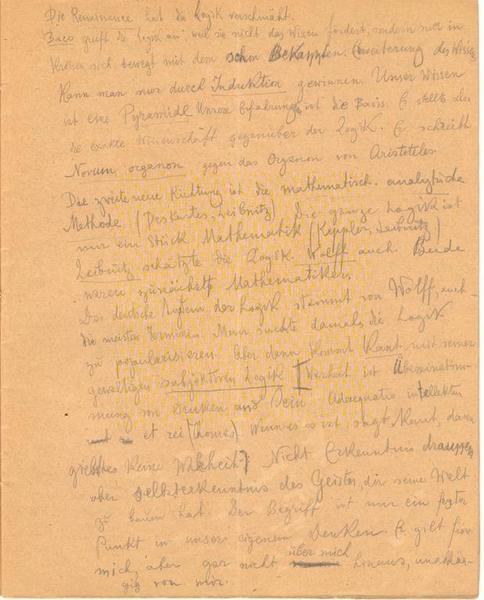 Die Renaissance hat die Logik verschmäht.
Baco greift die Logik an, weil sie nicht das Wissen fördert, sondern nur im
Kreise sich bewegt mit dem schon Bekannten. Erweiterung des Wissens
kann man nur durch Induktion gewinnen. Unser Wissen
ist eine Pyramide. Unsere Erfahrung ist die Basis. Er stellt also
die exakte Wissenschaft gegenüber der Logik. Er schreibt
Novum organon gegen das Organon von Aristoteles.
Die zweite neue Richtung ist die mathematisch-analytische
Methode (Deskartes, Leibnitz) Die ganze Logik ist
nur ein Stück Mathematik (Keppler, Leibnitz)
Leibnitz schätzte die Logik. Wolff auch. Beide
waren zunächst Mathematiker.
Das deutsche System der Logik stammt von Wolff, auch
die meisten Termini. Man suchte damals die Logik
zu popularisieren. Aber dann kommt Kant mit seiner
gewaltigen subjektiven Logik. Warheit ist Übereinstim-
mung von Denken und Sein. Adaequatio intellektus
et rei (Thomas) Wenn es so ist, sagt Kant, dann
gibt es keine Wahrheit. Nicht Erkenntnis draussen
aber Selbsterkenntnis des Geistes, der seine Welt
zu bauen hat. Der Begriff ist nur ein fester
Punkt in unser eigenem Denken. Er gilt für
mich, aber gar nicht über mich hinaus, unabhän-
gig von mir.